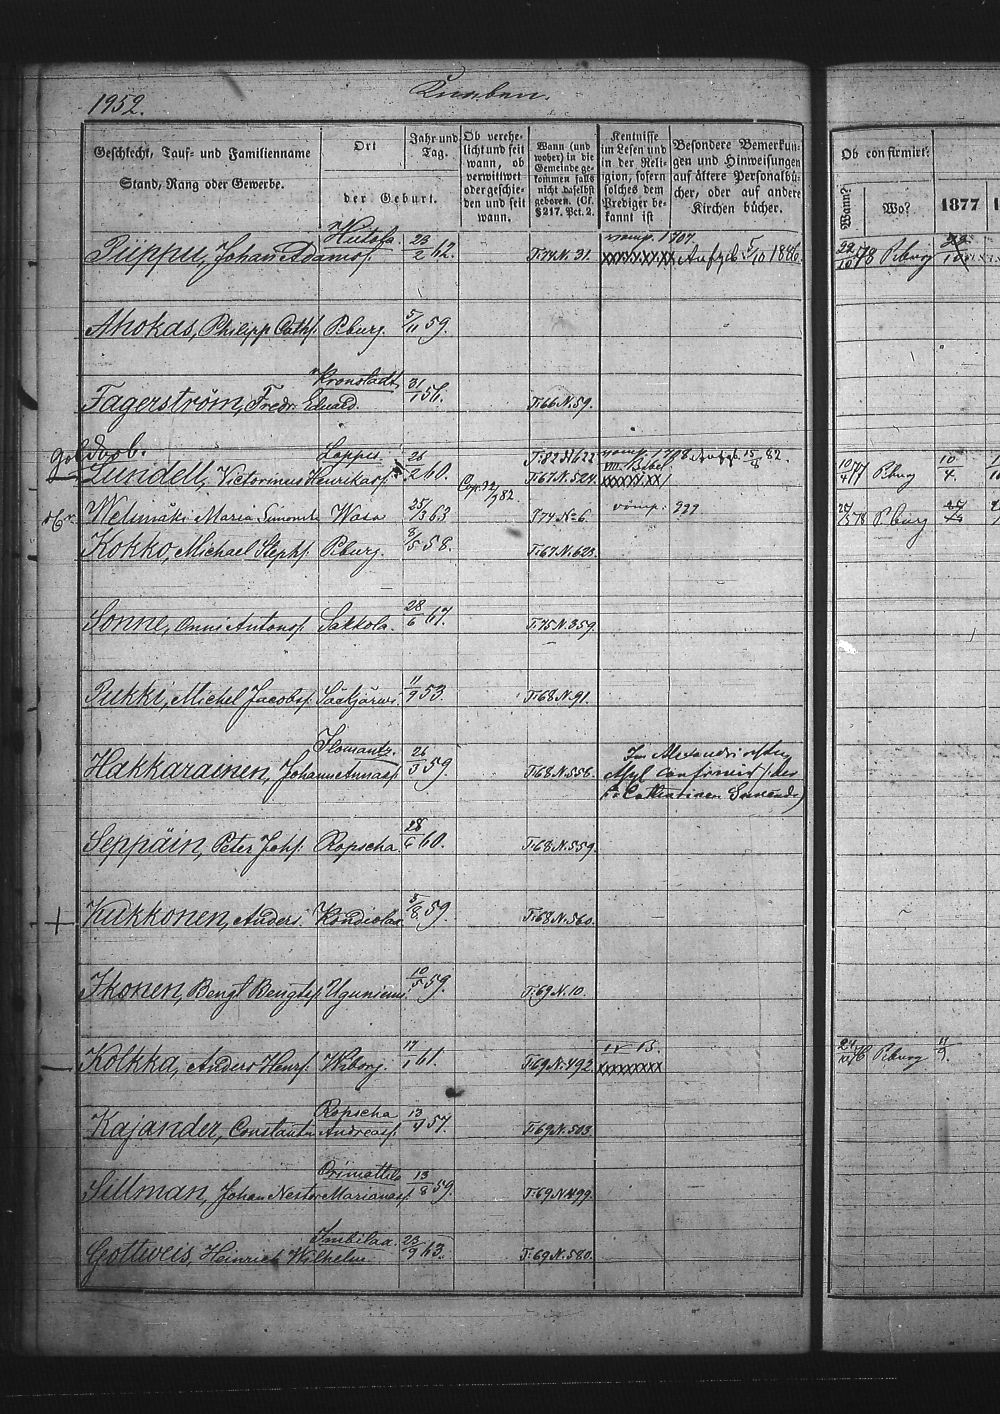 1952.
Knaben.
Geschlecht, Tauf- und Familienname
Stand, Rang oder Gewerbe.
Ort
der Geburt.
Jahr und
Tag.
Ob verehe-
licht und seit
wann, ob
verwittwet
oder geschie-
den und seit
wann.
Wann (und
woher) in die
Gemeinde ge-
kommen falls
nicht daselbst
geboren. (Cf.
§ 217. Pct. 2.
Kentnisse
im Lesen und
in der Reli-
gion, sofern
solches dem
Prediger be-
kannt ist
Besondere Bemerkun-
gen und Hinweisungen
auf ältere Personalbü-
cher, oder auf andere
Kirchen bücher.
Ob confirmirt:
Wann?
Wo?
1877
Piippu, Johan Adamsf. Hiitola 23/2 62. T.74 N. 31. xxxxxxxx 5/10 1886. 22/10 78 P.burg
Ahokas, Philipp Cathf. P.burg. 5/11 59.
Fagerström, Fredr. Eduard. Kronstadt 31/1 56. T.66 N. 59.
Lundell, Victorinus Henriksf. Loppis 26/2 60. T.82 N 622 T.67 N. 524. VIII. Bibel xxxxxxx 15/8 82. 10/4 77 P.burg 10/4.
Wehmäki Maria Simonst. Wasa 25/3 63 T74 No 6. 78 P.burg
Kokko, Michael Stephf. P.burg. 8/5 58. T.67 N. 623.
Sonne, Onni Antonsf. Sakkola. 28/6 67. T.75 N. 359.
Pukki, Michel Jacobsf. Säkjärwi. 11/9 53. T.68 N. 91.
Hakkarainen, Johann Annasf. Ilomantz. 26/5 59. T.68 N. 558. Im Alexandri
Asyl confirmirt
Seppäin, Peter Johf. Ropscha 28/6 60. T.68 N. 559.
Kukkonen, Anders. Kondiolax 5/8. 59. T.68 N. 560.
Ikonen, Bengt Bengtsf. Uguniemi 10/5 59. T.69 N. 10.
Kolkka, Anders Henrf. Wiborg. 17/1 61. T.69 N. 492. xxxxxxxxx P.burg 11/9.
Kajander, Constantin Andreasf. Ropscha 13/4 57. T.69 N. 503.
Sillman, Johan Nestor Mariansf. Orimattila 13/8 59. T.69 N. 499.
Gottweis, Heinrich Wilhelm Imbilax. 23/9 63. T.69 N. 580.